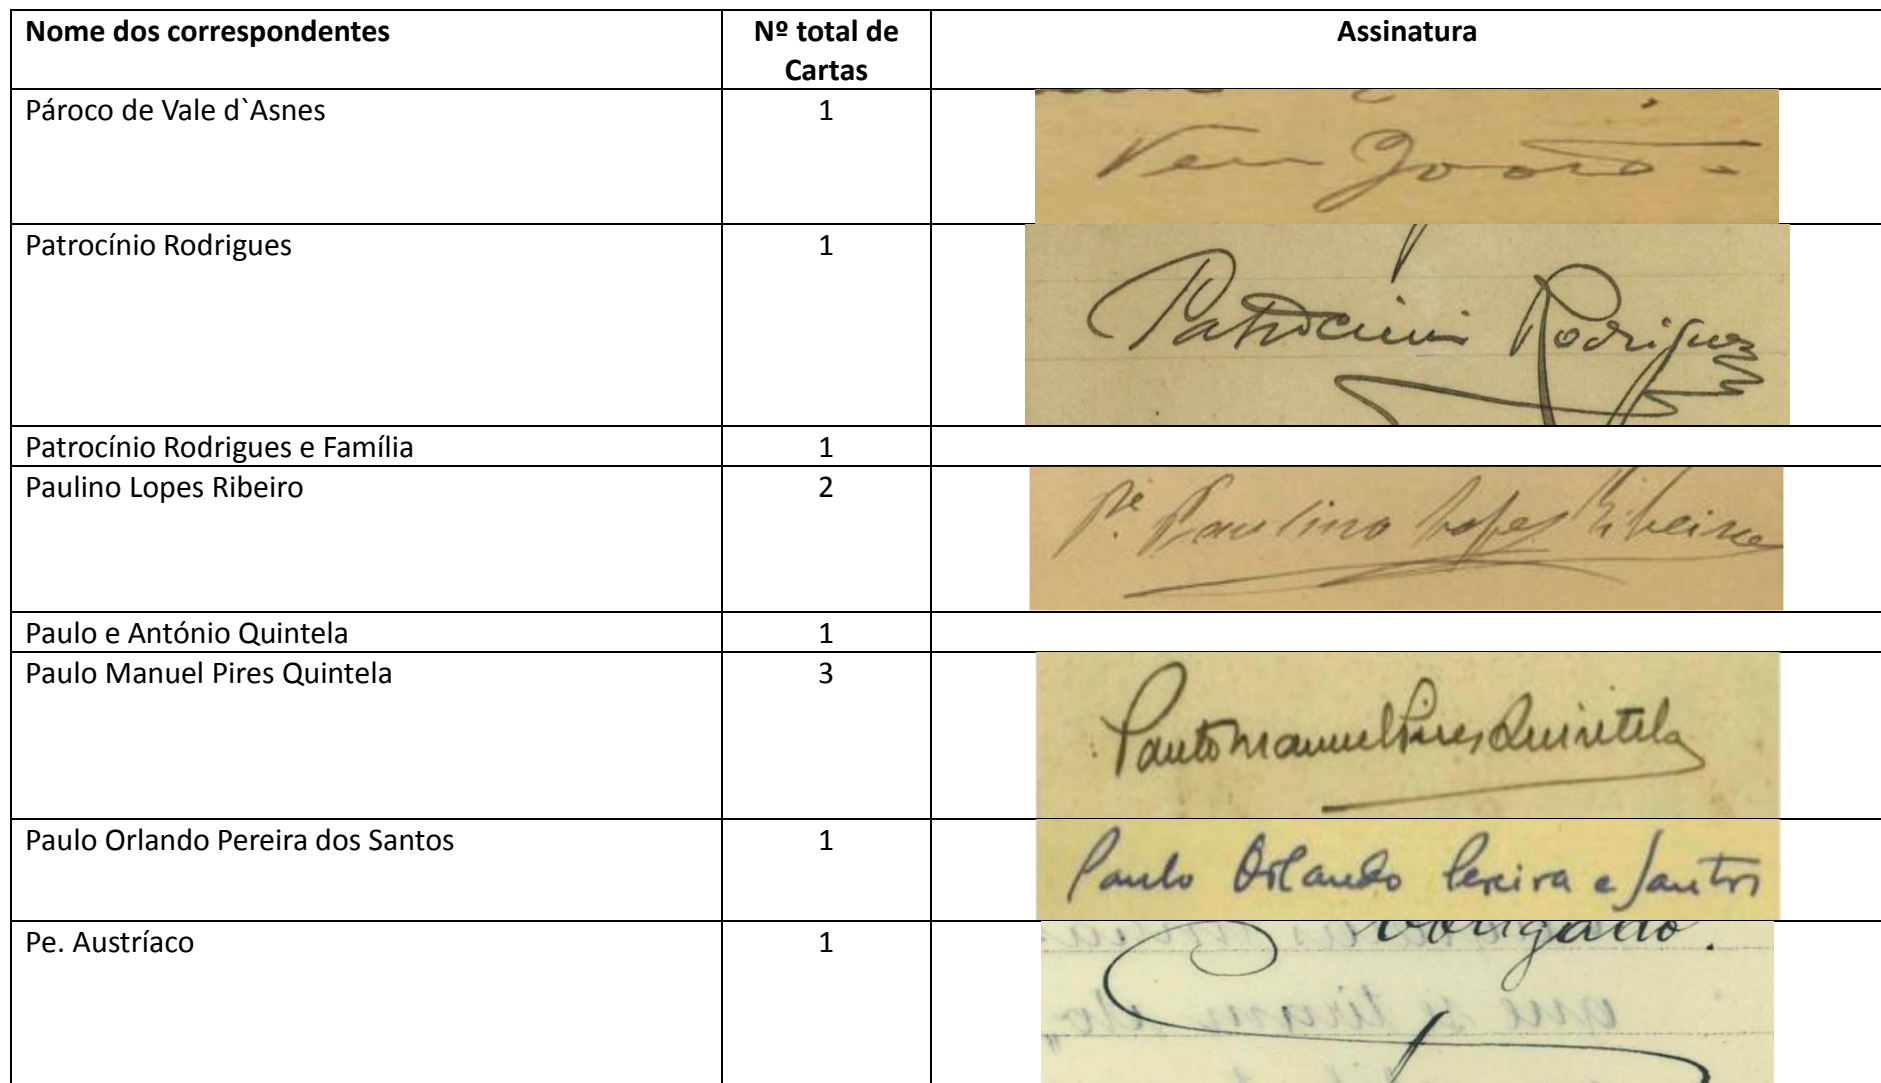 Nome dos correspondentes
Nº total de
Cartas
Assinatura
Pároco de Vale d`Asnes
1
Patrocínio Rodrigues
1
Patrocinio Rodrigues
Patrocínio Rodrigues e Família
1
Paulino Lopes Ribeiro
2
Pe. Paulino Lopes Ribeiro
Paulo e António Quintela
1
Paulo Manuel Pires Quintela
3
Paulo Manuel Pires Quintela
Paulo Orlando Pereira dos Santos
1
Paulo Orlando Pereira e Santos
Pe. Austríaco
1
obrigado.
que se tiram